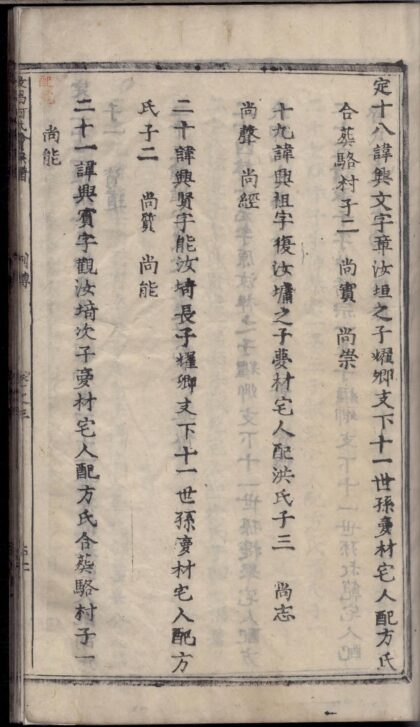 定十八諱興文字章汝垣之子耀卿支下十一世孫夌材宅人配方氏
合葬駱村子二　尚賓　尚崇
十九諱興祖字復汝墉之子夌材宅人配洪氏子三　尚志
尚磬　尚經
二十諱興賢字能汝埼長子耀卿支下十一世孫夌材宅人配方
氏子二　尚質　尚能
二十一諱興賓字觀汝埼次子夌材宅人配方氏合葬駱村子一
尚能